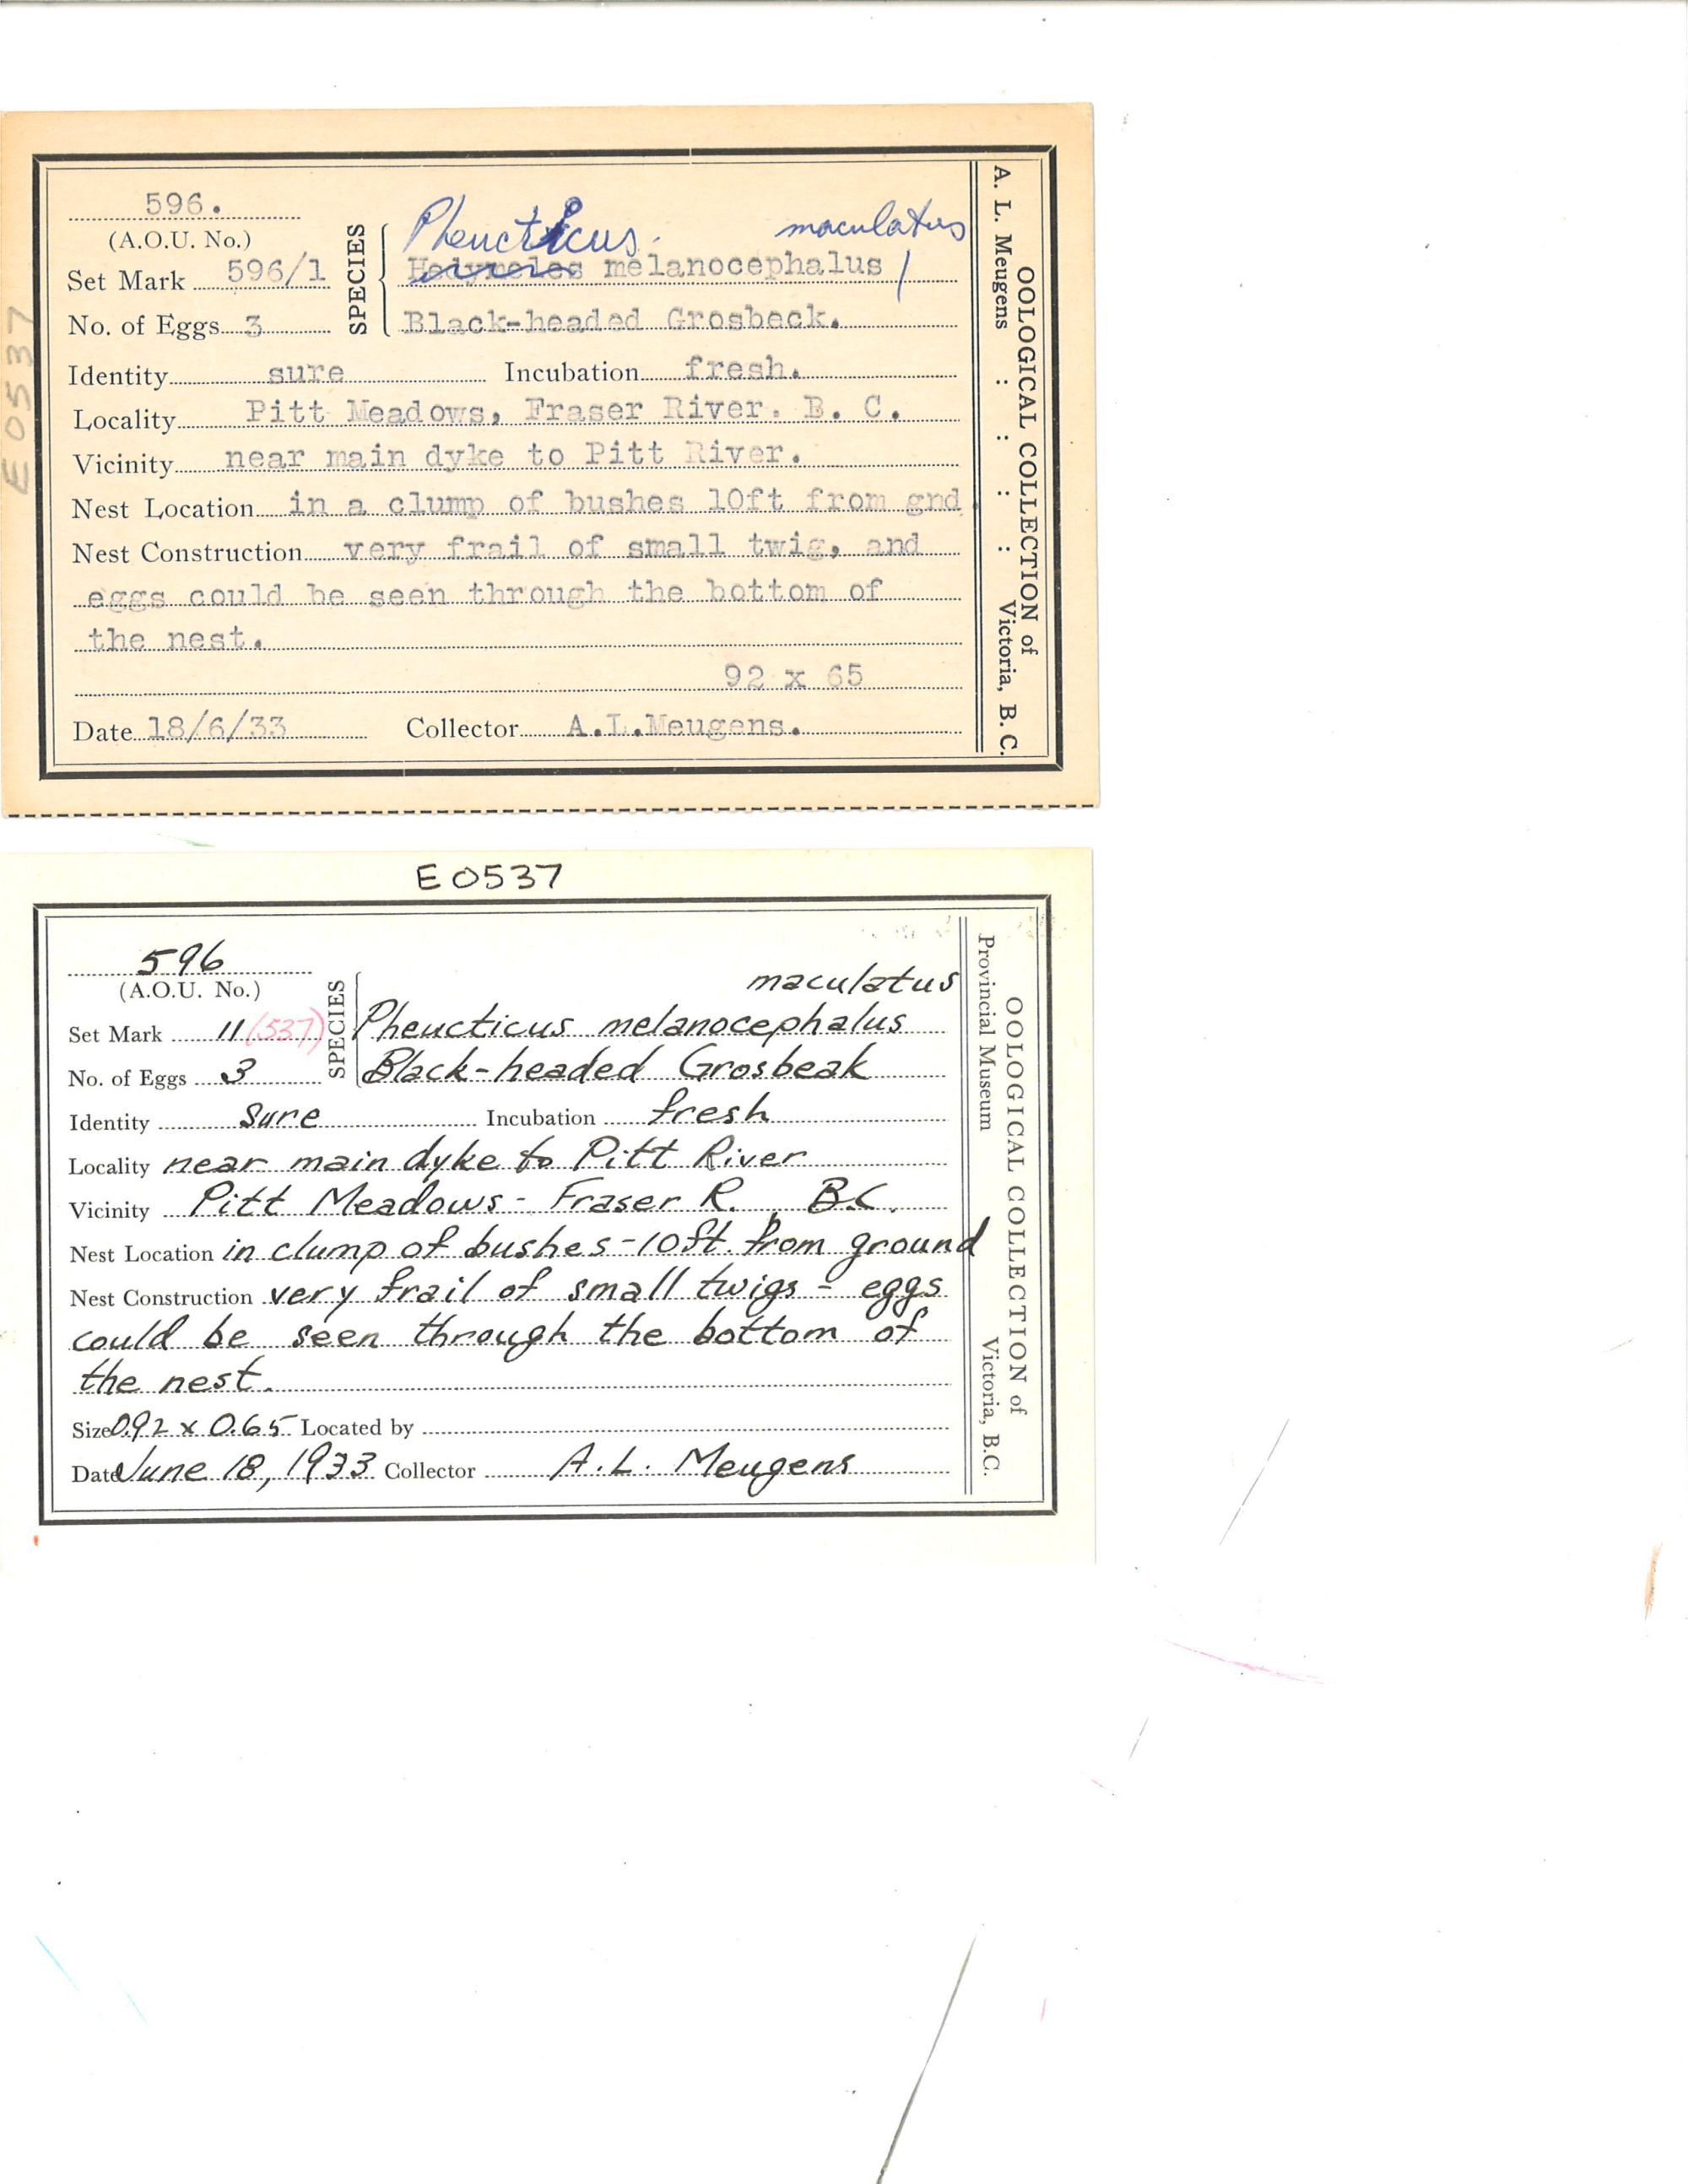 596.
(A.O.U. No.)
Pheucticus. maculatus
Set Mark 596/1
SPECIES
Hedymeles melanocephalus /
No. of Eggs 3
Black-headed Grosbeck.
Identity sure Incubation fresh.
Locality Pitt Meadows, Fraser River. B. C.
Vicinity near main dyke to Pitt River.
Nest Location in a clump of bushes 10ft from gnd.
Nest Construction very frail of small twig, and
eggs could be seen through the bottom of
the nest.
92 x 65
Date 18/6/33 Collector A.L.Meugens.
OOLOGICAL COLLECTION of
A. L. Meugens : : : : Victoria, B.C.
E0537
E0537
596
(A.O.U. No.)
maculatus
Set Mark 11 (537)
SPECIES
Pheucticus melanocephalus
No. of Eggs 3
Black-headed Grosbeak
Identity Sure Incubation fresh
Locality near main dyke to Pitt River
Vicinity Pitt Meadows - Fraser R., B.C.
Nest Location in clump of bushes - 10ft. from ground
Nest Construction very frail of small twigs - eggs
could be seen through the bottom of
the nest.
Size 0.92 x 0.65 Located by
Date June 18, 1933 Collector A.L. Meugens
OOLOGICAL COLLECTION of
Provincial Museum Victoria, B.C.